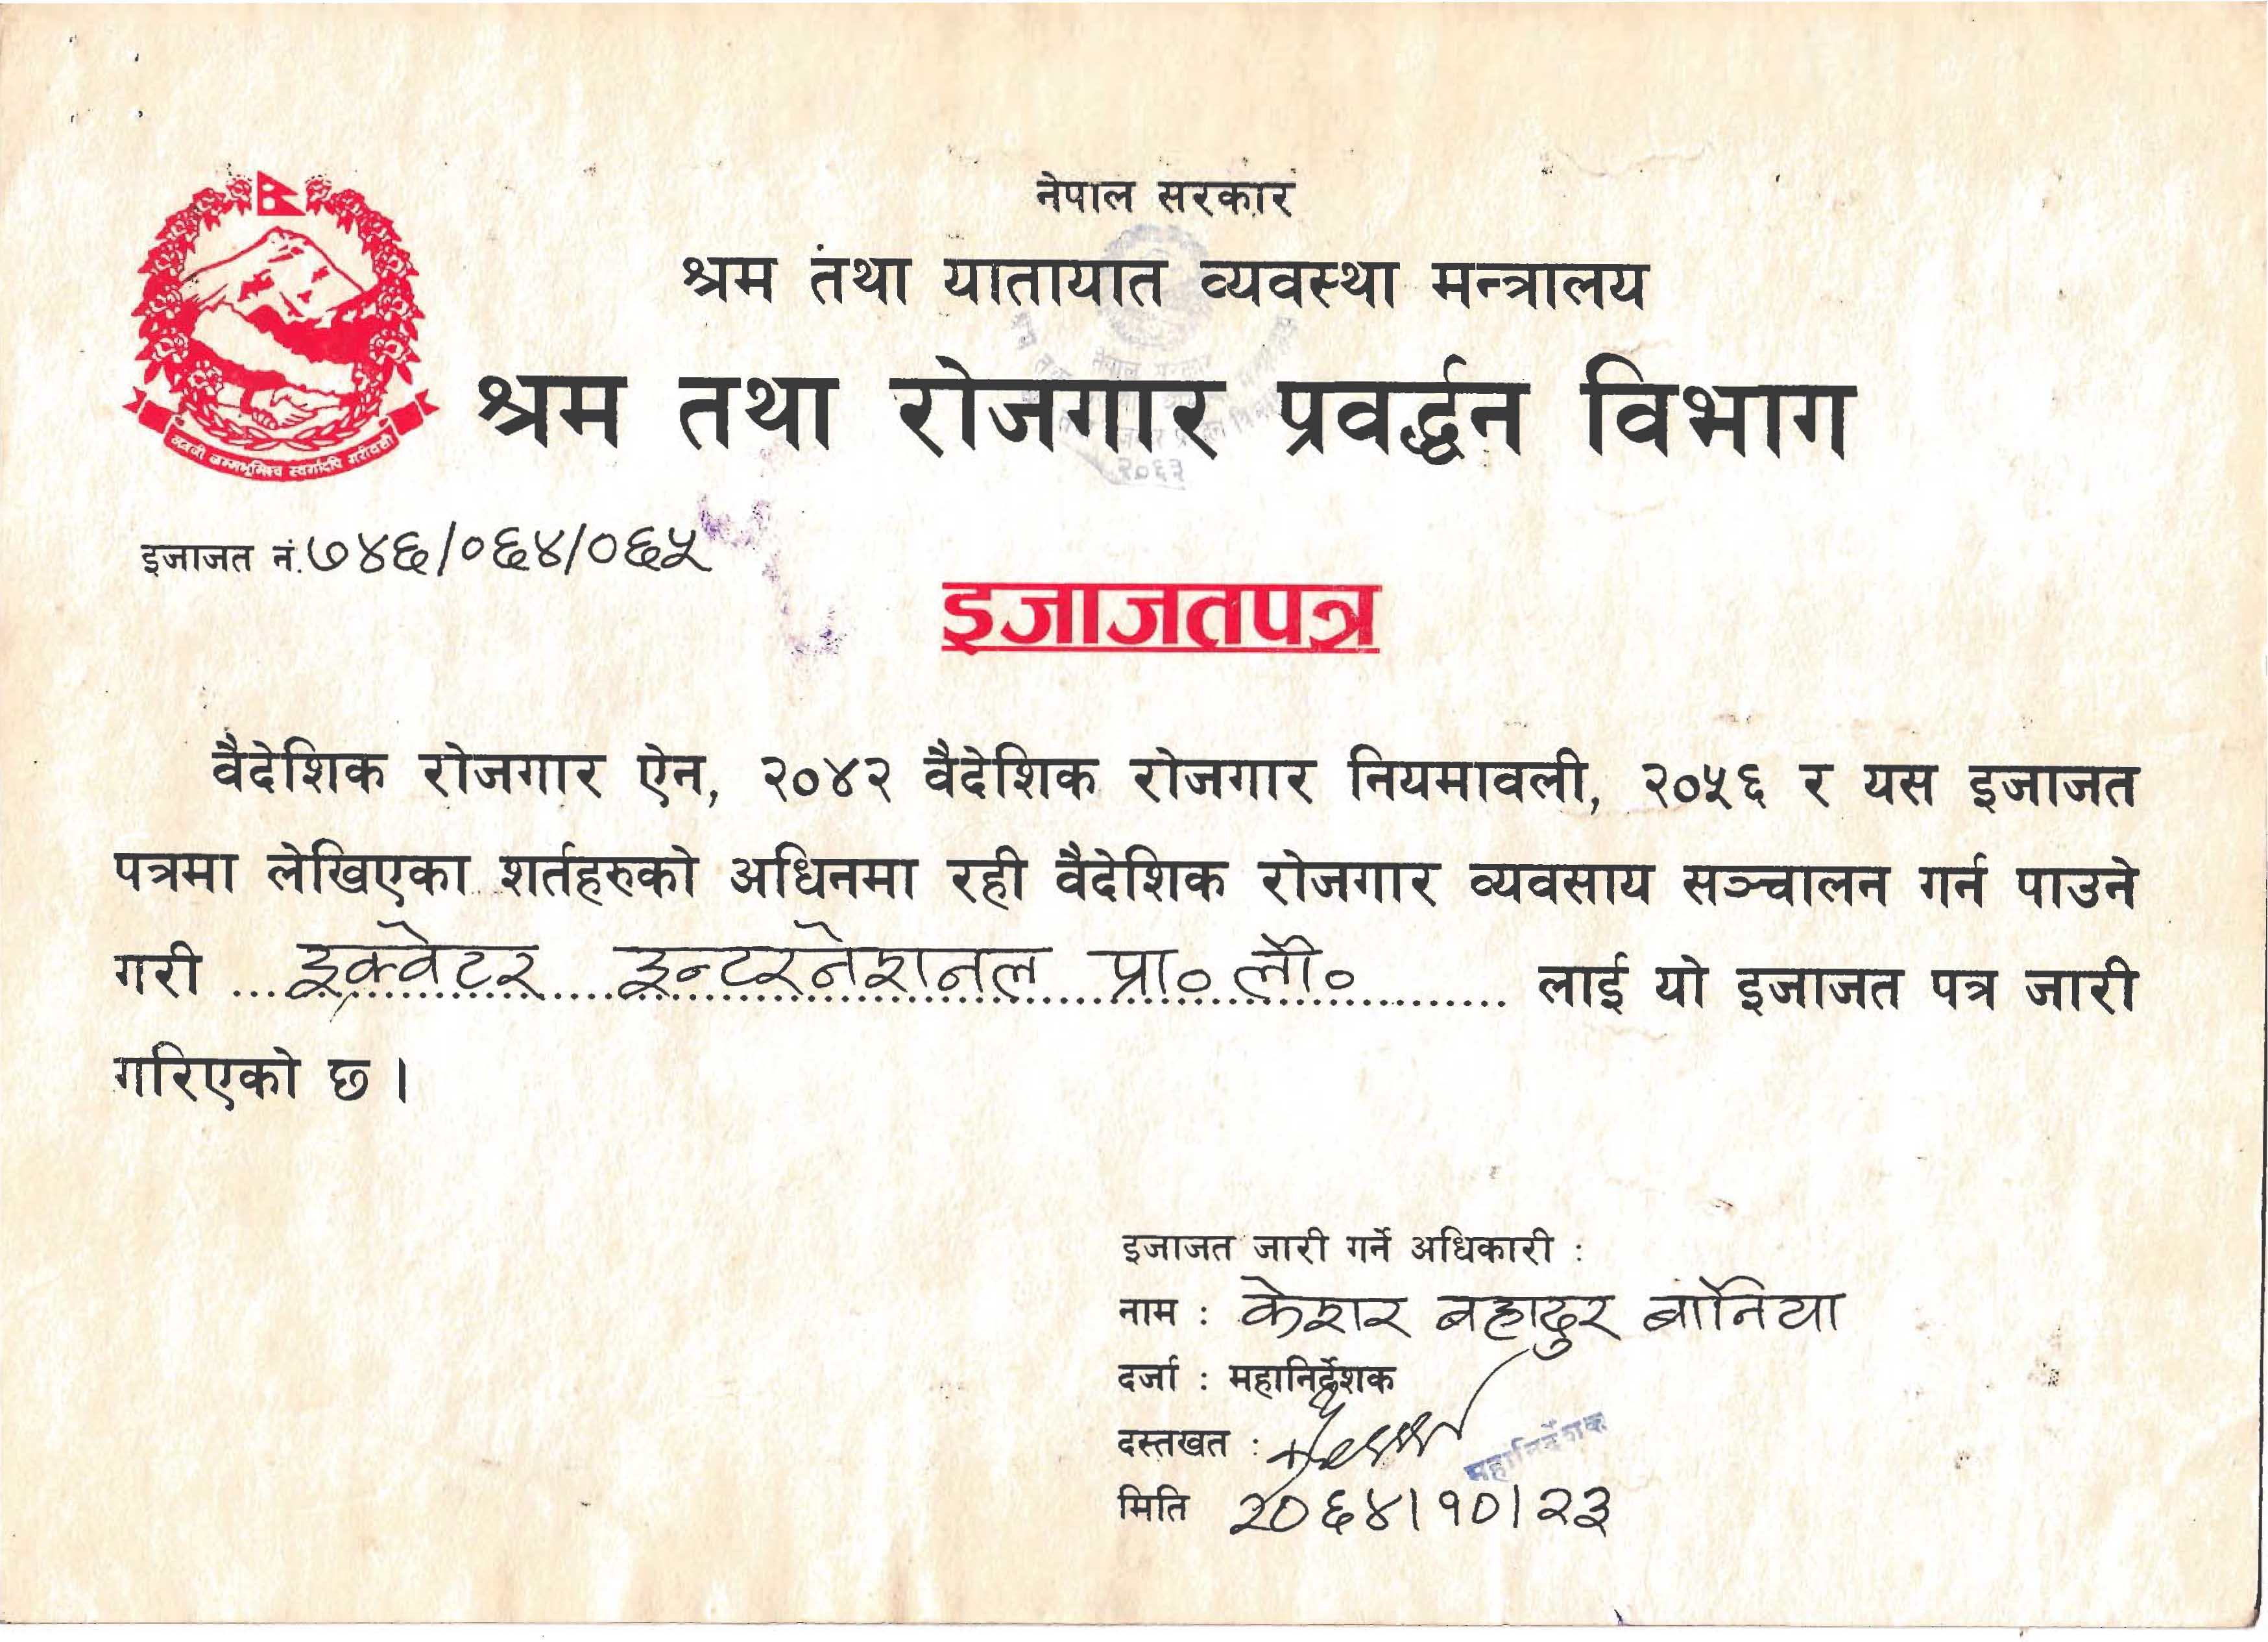 नेपाल सरकार
श्रम तथा यातायात व्यवस्था मन्त्रालय
श्रम तथा रोजगार प्रवर्द्धन विभाग
२०६३
जननी जन्मभूमिश्च स्वर्गादपि गरीयसी
इजाजत नं. ७४६/०६४/०६५
इजाजतपत्र
वैदेशिक रोजगार ऐन, २०४२ वैदेशिक रोजगार नियमावली, २०५६ र यस इजाजत
पत्रमा लेखिएका शर्तहरुको अधिनमा रही वैदेशिक रोजगार व्यवसाय सञ्चालन गर्न पाउने
गरी ... इक्वेटर इन्टरनेशनल प्रा० ली० ... लाई यो इजाजत पत्र जारी
गरिएको छ ।
इजाजत जारी गर्ने अधिकारी :
नाम : केशर बहादुर बानिया
दर्जा : महानिर्देशक
दस्तखत :
महानिर्देशक
मिति २०६४।१०।२३